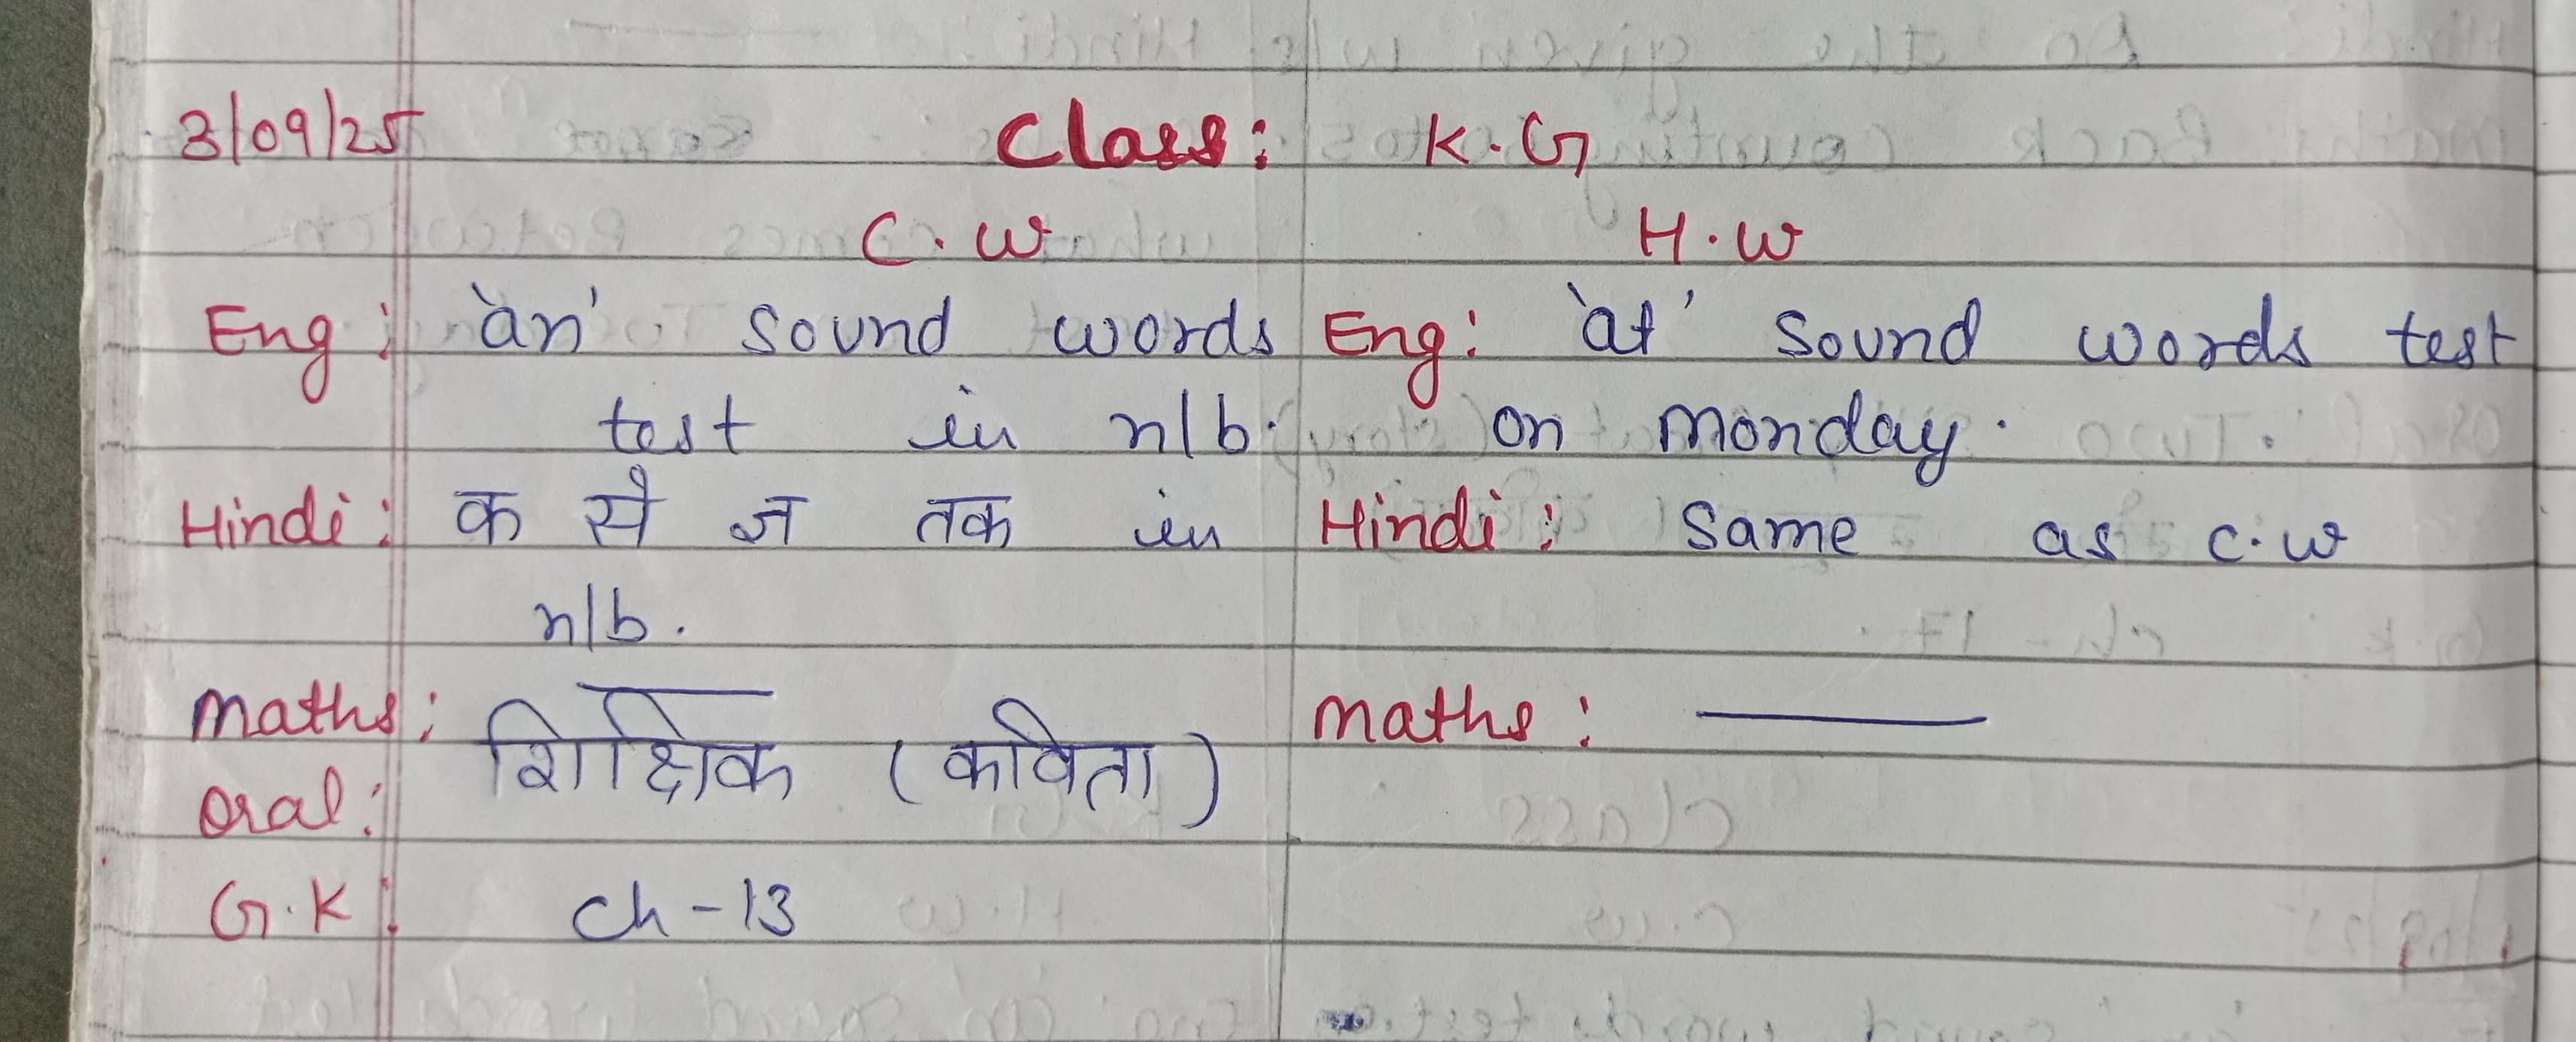 3/09/25 Class: K.G
C.W H.W
Eng: 'an' sound words Eng: 'at' sound words test
test in n/b. on monday.
Hindi: क से ज तक in Hindi: same as c.w
n/b.
maths: — maths: —
oral: शिक्षिक (कविता)
G.K: ch-13